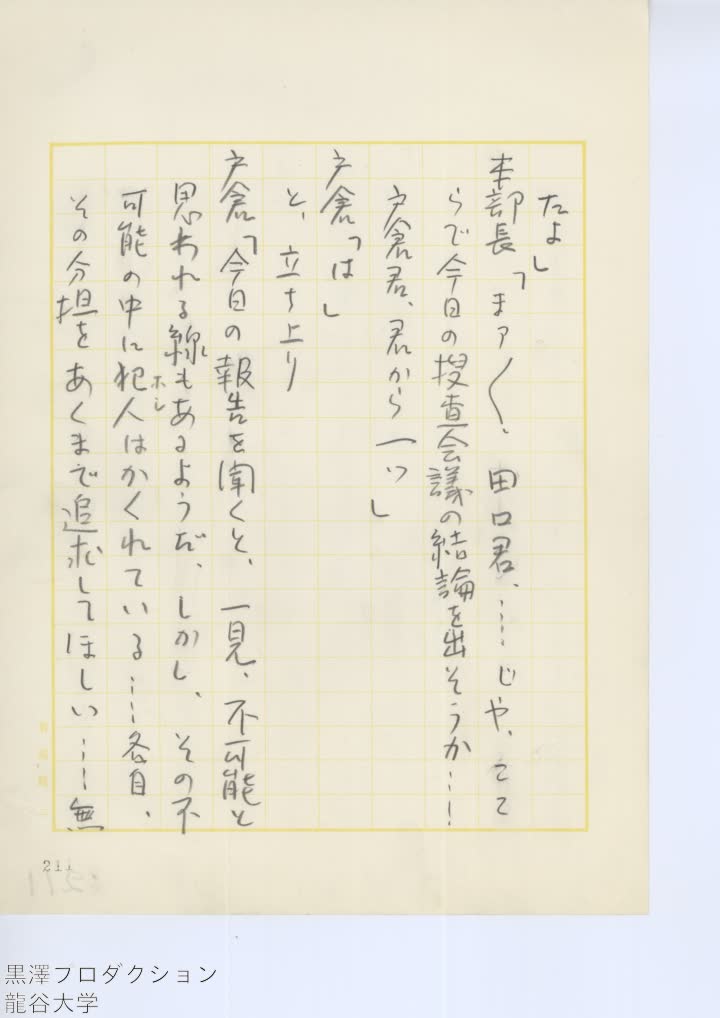 たよ」
本部長「まァ〳〵、田口君、……じゃ、ここ
らで今日の捜査会議の結論を出そうか……
戸倉君、君から一つ」
戸倉「は」
と、立ち上り
戸倉「今日の報告を聞くと、一見、不可能と
思われる線もあるようだ、しかし、その不
可能の中に犯人はかくれている……各自、
ホシ
その分担をあくまで追求してほしい……無
211
黒澤プロダクション
龍谷大学